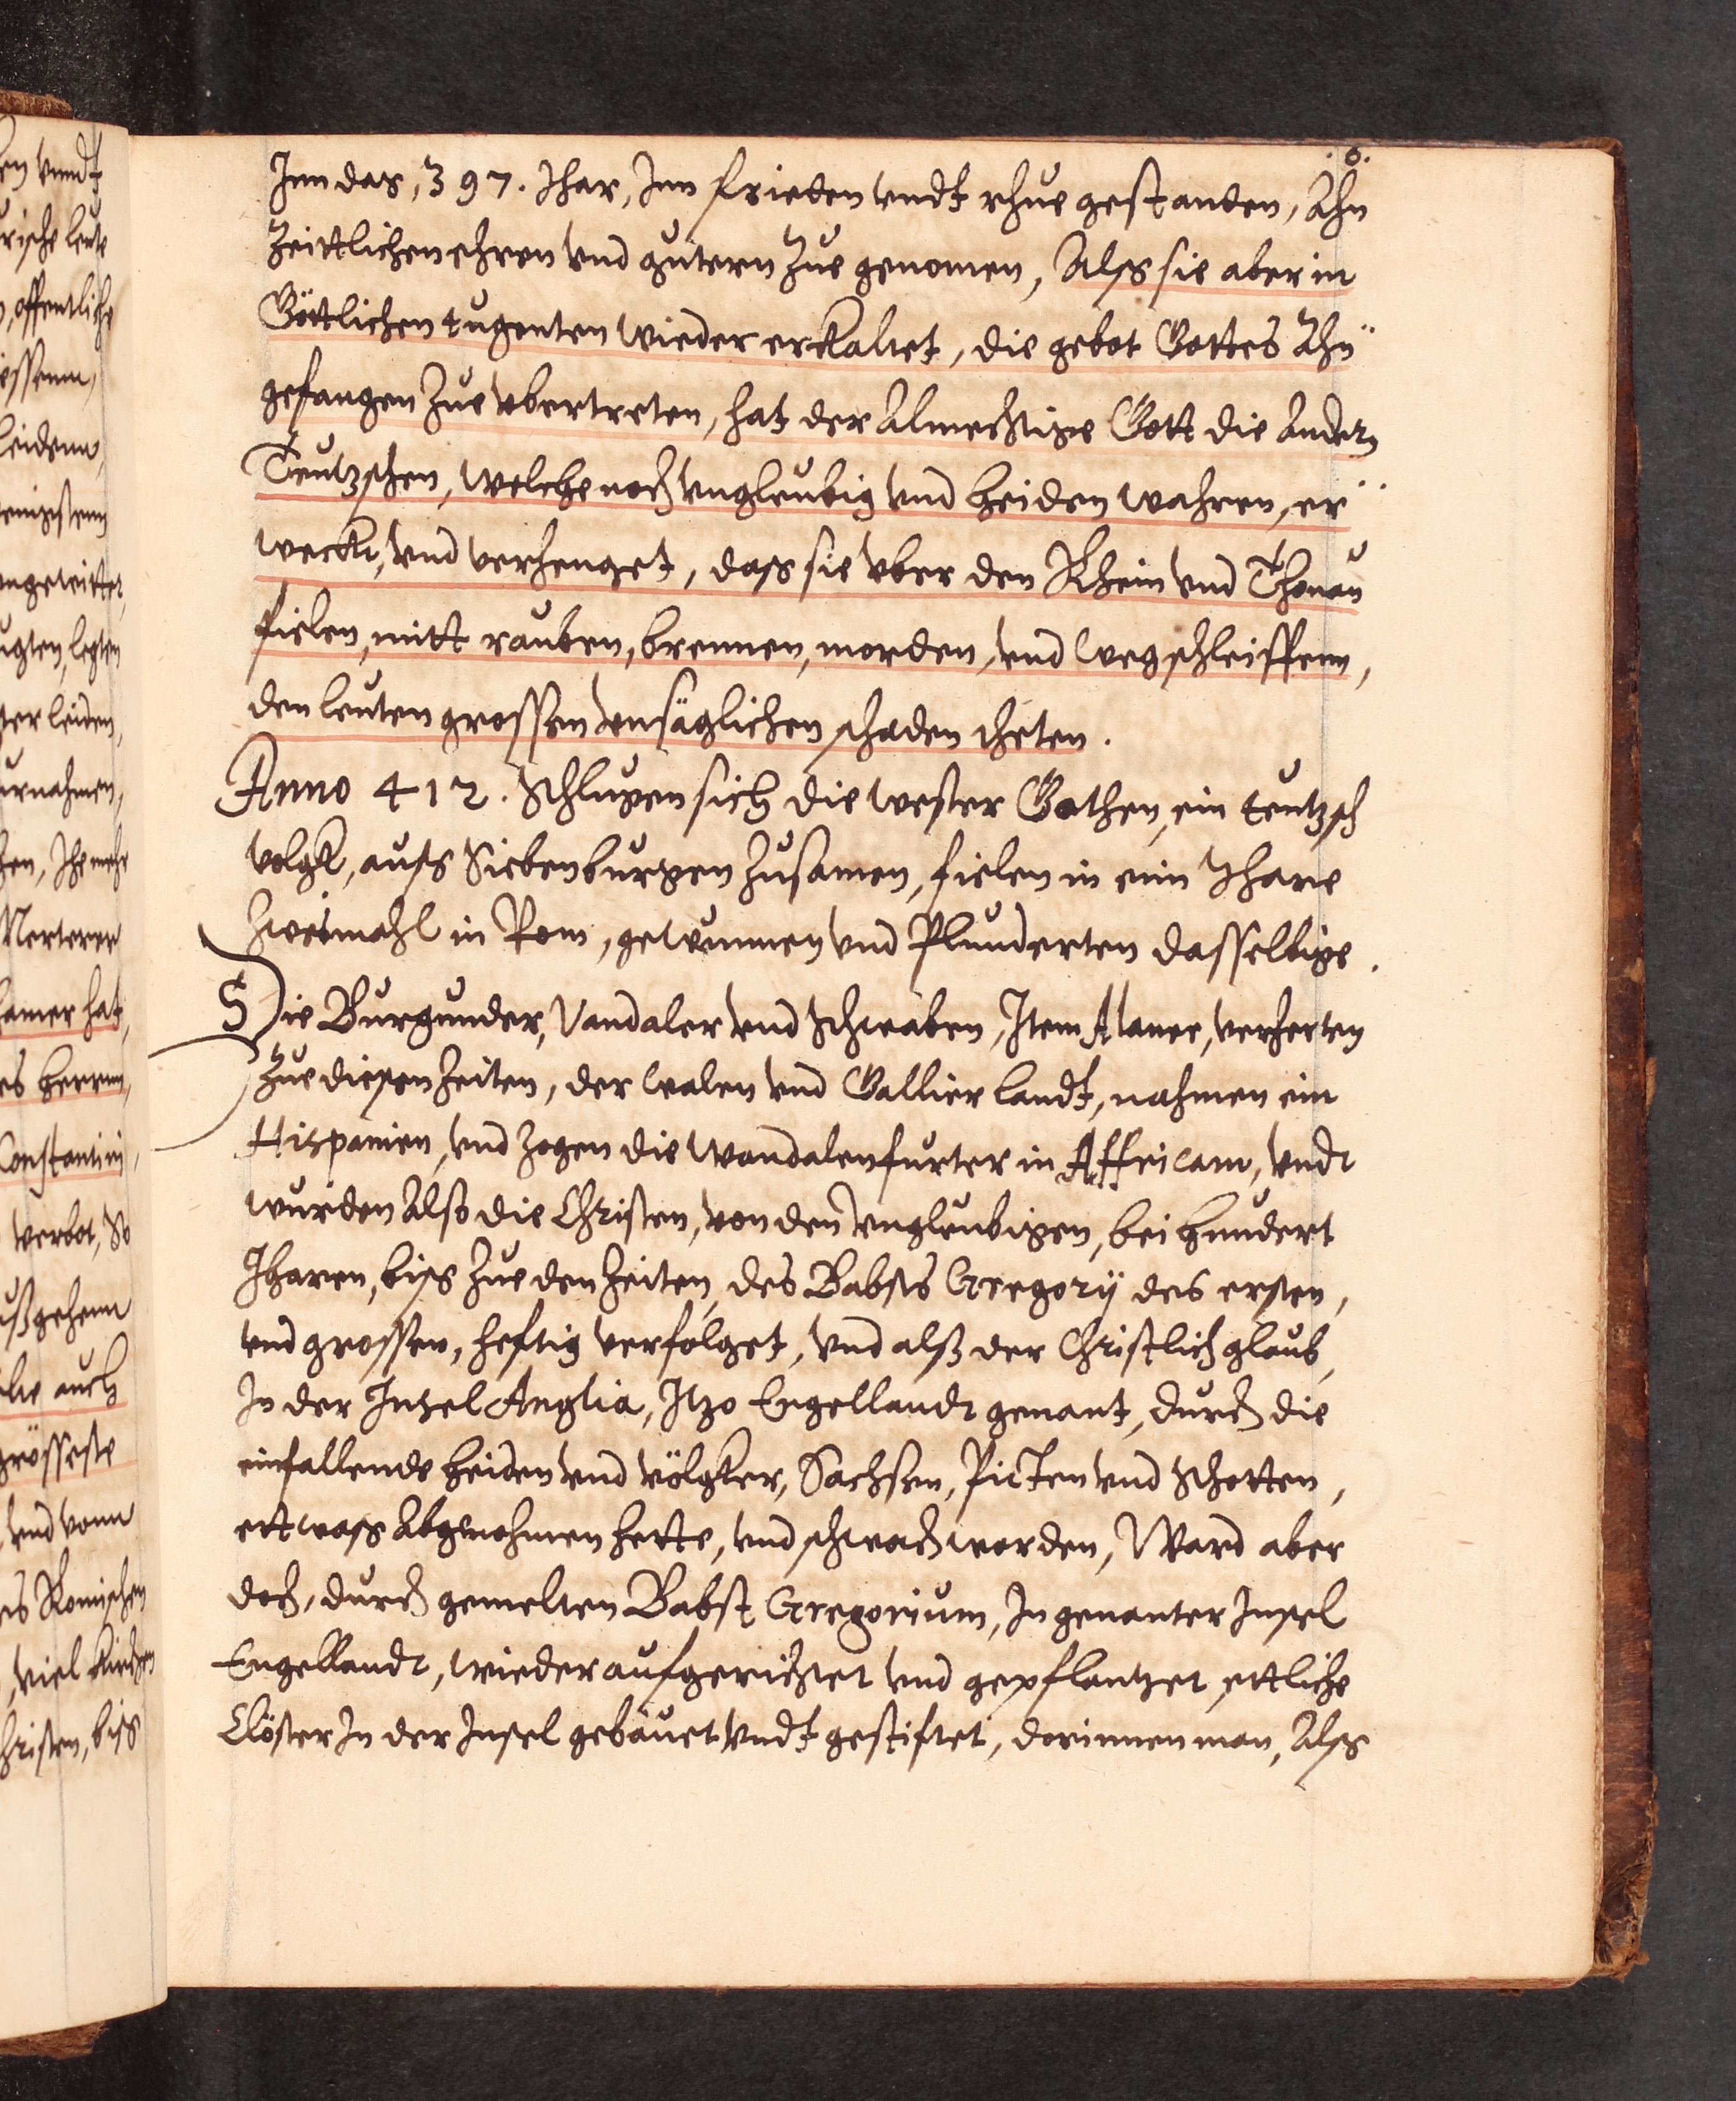 .6.
Inn das, 397. Ihar, Inn frieden vndt rhue gestanden, Ahn
Zeittlichen ehren vnd gütern Zue genomen, Alss sie aber in
Göttlichen tugenten wieder erkaltet, die gebot Gottes Ahn
gefangen Zue vbertreten, hat der Almechtige Gott die Andern
Teutzschen, welche noch vngleubig vnd heiden wahren, er
weckt, vnd verhenget, dass sie vber den Rhein vnd Thonau
fielen, mitt rauben, brennen, morden, vnd wegschleiffenn,
den leuten grossen vnsäglichen schaden theten.
Anno 412. Schlugen sich die wester Gothen, ein teutzsch
volgk, auss Siebenburgen Zusamen, fielen in einn Ihare
Zweimahl in Rom, gewunnen vnd Plunderten dasselbige.
Die Burgunder, Vandaler vnd Schwaben, Item Alaner, verherten
Zue diesen Zeiten, der walen vnd Gallier landt, nahmen ein
Hispanien, vnd Zogen die Wandalen furter in Affricam, vndt
wurden Also die Christen, von den vngleubigen, bei hundert
Iharen, biss Zue den Zeiten, des Babsts Gregorÿ des ersten,
vnd grossen, heftig verfolget, vnd alss der Christlich glaub,
In der Insel Anglia, Itzo Engellandt genant, durch die
einfallende heiden vnd völgker, Sachsen, Picten vnd Schotten,
ettwass Abgenohmen hette, vnd schwach worden, Ward aber
doch, durch gemelten Babst Gregorium, In genanter Insel
Engellandt, wieder aufgerichtet vnd gepflantzet, ettliche
Clöster In der Insel gebauet vndt gestiftet, dorinnen man, Alss